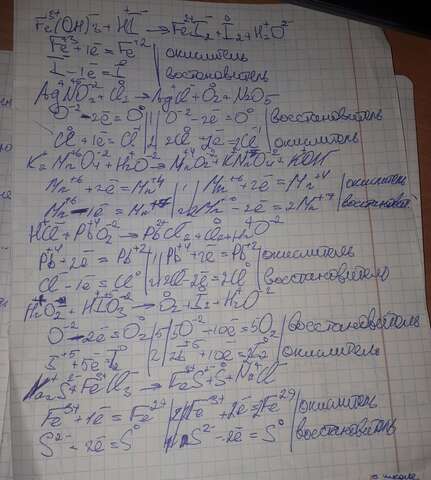 Fe(OH)₃ + HI → FeI₂ + I₂ + H₂O
Fe⁺³ + 1ē = Fe⁺² | окислитель
I⁻ - 1ē = I⁰ | востоновитель
AgNO₃ + Cl₂ → AgCl + O₂ + N₂O₅
O⁻² - 2ē = O⁰ | 1 | O⁻² - 2ē = O⁰ | восстановитель
Cl⁰ + 1ē = Cl⁻ | 2 | 2Cl⁰ + 2ē = 2Cl⁻¹ | окислитель
K₂MnO₄ + H₂O → MnO₂ + KMnO₄ + KOH
Mn⁺⁶ + 2ē = Mn⁺⁴ | 1 | Mn⁺⁶ + 2ē = Mn⁺⁴ | окислитель
Mn⁺⁶ - 1ē = Mn⁺⁷ | 2 | 2Mn⁺⁶ - 2ē = 2Mn⁺⁷
HCl + PbO₂ → PbCl₂ + Cl₂ + H₂O
Pb⁺⁴ + 2ē = Pb⁺² | 1 | Pb⁺⁴ + 2ē = Pb⁺² | окислитель
Cl⁻ - 1ē = Cl⁰ | 2 | 2Cl⁻ - 2ē = 2Cl⁰ | восстановитель
H₂O₂ + HIO₃ → O₂ + I₂ + H₂O
5O⁻² - 10ē = 5O₂ | восстановитель
I⁺⁵ + 5ē = I⁰ | окислитель
Na₂S + FeCl₃ → FeS + S + NaCl
Fe³⁺ + 1ē = Fe²⁺ | 2 | 2Fe³⁺ + 2ē = 2Fe²⁺ | окислитель
S²⁻ - 2ē = S⁰ | 1 | S²⁻ - 2ē = S⁰ | восстановитель